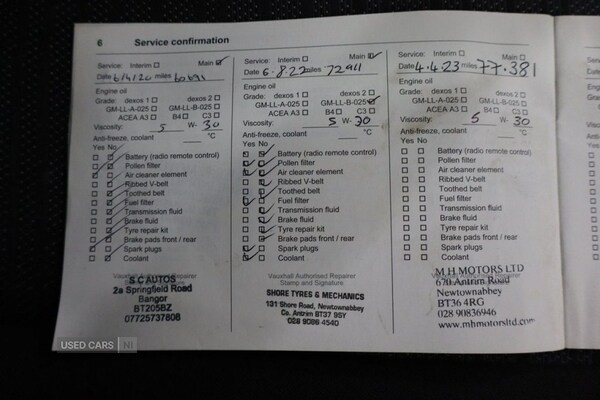 6 Service confirmation
Service: Interim Main
Date 6/4/20 miles
Engine oil
Grade: dexos 1 dexos 2
GM-LL-A-025 GM-LL-B-025
ACEA A3 B4 C3
Viscosity: 5 W- 30
Anti-freeze, coolant °C
Yes No
Battery (radio remote control)
Pollen filter
Air cleaner element
Ribbed V-belt
Toothed belt
Fuel filter
Transmission fluid
Brake fluid
Tyre repair kit
Brake pads front / rear
Spark plugs
Coolant
Vauxhall Authorised Repairer
S C AUTOS
2a Springfield Road
Bangor
BT205BZ
07725737808
Service: Interim Main
Date 6.8.22 miles 72911
Engine oil
Grade: dexos 1 dexos 2
GM-LL-A-025 GM-LL-B-025
ACEA A3 B4 C3
Viscosity: 5 W- 30
Anti-freeze, coolant °C
Yes No
Battery (radio remote control)
Pollen filter
Air cleaner element
Ribbed V-belt
Toothed belt
Fuel filter
Transmission fluid
Brake fluid
Tyre repair kit
Brake pads front / rear
Spark plugs
Coolant
Vauxhall Authorised Repairer
Stamp and Signature
SHORE TYRES & MECHANICS
131 Shore Road, Newtownabbey
Co. Antrim BT37 9SY
028 9086 4540
Service: Interim Main
Date 4.4.23 miles 77.381
Engine oil
Grade: dexos 1 dexos 2
GM-LL-A-025 GM-LL-B-025
ACEA A3 B4 C3
Viscosity: 5 W- 30
Anti-freeze, coolant °C
Yes No
Battery (radio remote control)
Pollen filter
Air cleaner element
Ribbed V-belt
Toothed belt
Fuel filter
Transmission fluid
Brake fluid
Tyre repair kit
Brake pads front / rear
Spark plugs
Coolant
M H MOTORS LTD
670 Antrim Road
Newtownabbey
BT36 4RG
028 90836946
www.mhmotorsltd.com
USED CARS NI